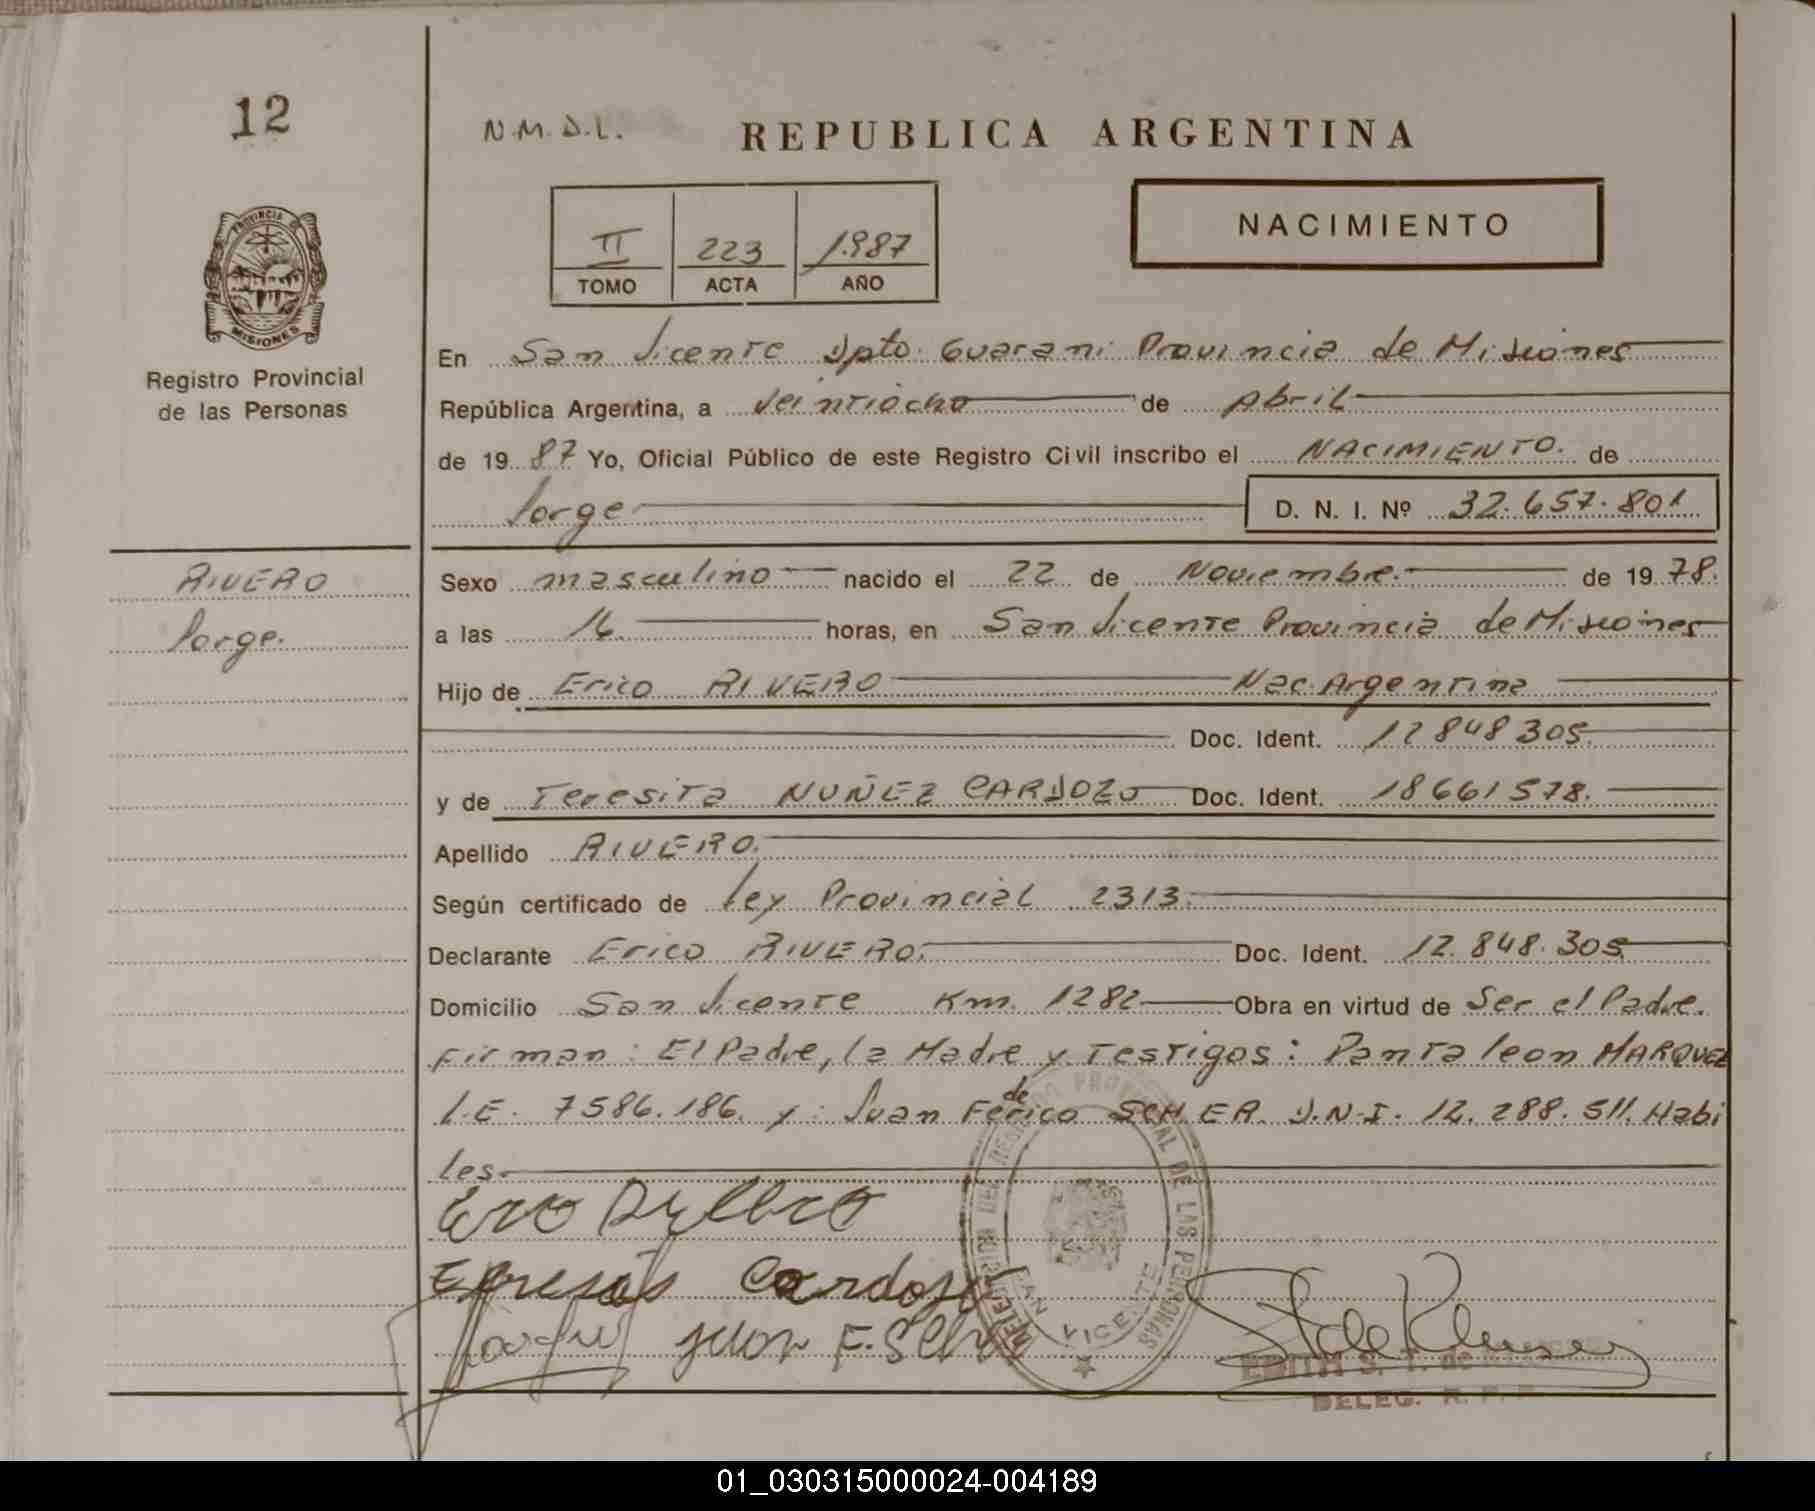 12
N.M.D.L.
REPUBLICA ARGENTINA
PROVINCIA DE
MISIONES
Registro Provincial
de las Personas
II 223 1987
TOMO ACTA AÑO
NACIMIENTO
En San Vicente Dpto. Guarani Provincia de Misiones
República Argentina, a veintiocho de Abril
de 19 87 Yo, Oficial Público de este Registro Civil inscribo el NACIMIENTO. de
Jorge D. N. I. Nº 32.657.801
RIVERO
Jorge.
Sexo masculino nacido el 22 de Noviembre. de 19 78.
a las 16 horas, en San Vicente Provincia de Misiones
Hijo de Erico RIVERO Nac. Argentina
Doc. Ident. 12848305.
y de Teresita NUÑEZ CARDOZO Doc. Ident. 18661578.
Apellido RIVERO.
Según certificado de Ley Provincial 2313.
Declarante Erico RIVERO. Doc. Ident. 12.848.305
Domicilio San Vicente Km. 1282 Obra en virtud de Ser el Padre.
Firman: El Padre, la Madre y Testigos: Pantaleon MARQUEZ
L.E. 7586.186. y: Juan Federico SCHER D.N.I. 12.288.511. Habi
les.
Cardoso
Juan F. Scher
DEL REGISTRO PROVINCIAL DE LAS PERSONAS
SAN VICENTE
EDITH S. T. de
DELEG. R. P. P.
01_030315000024-004189